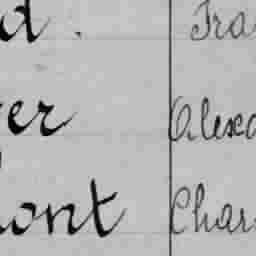 d. Fra
er Alexa
ont Char